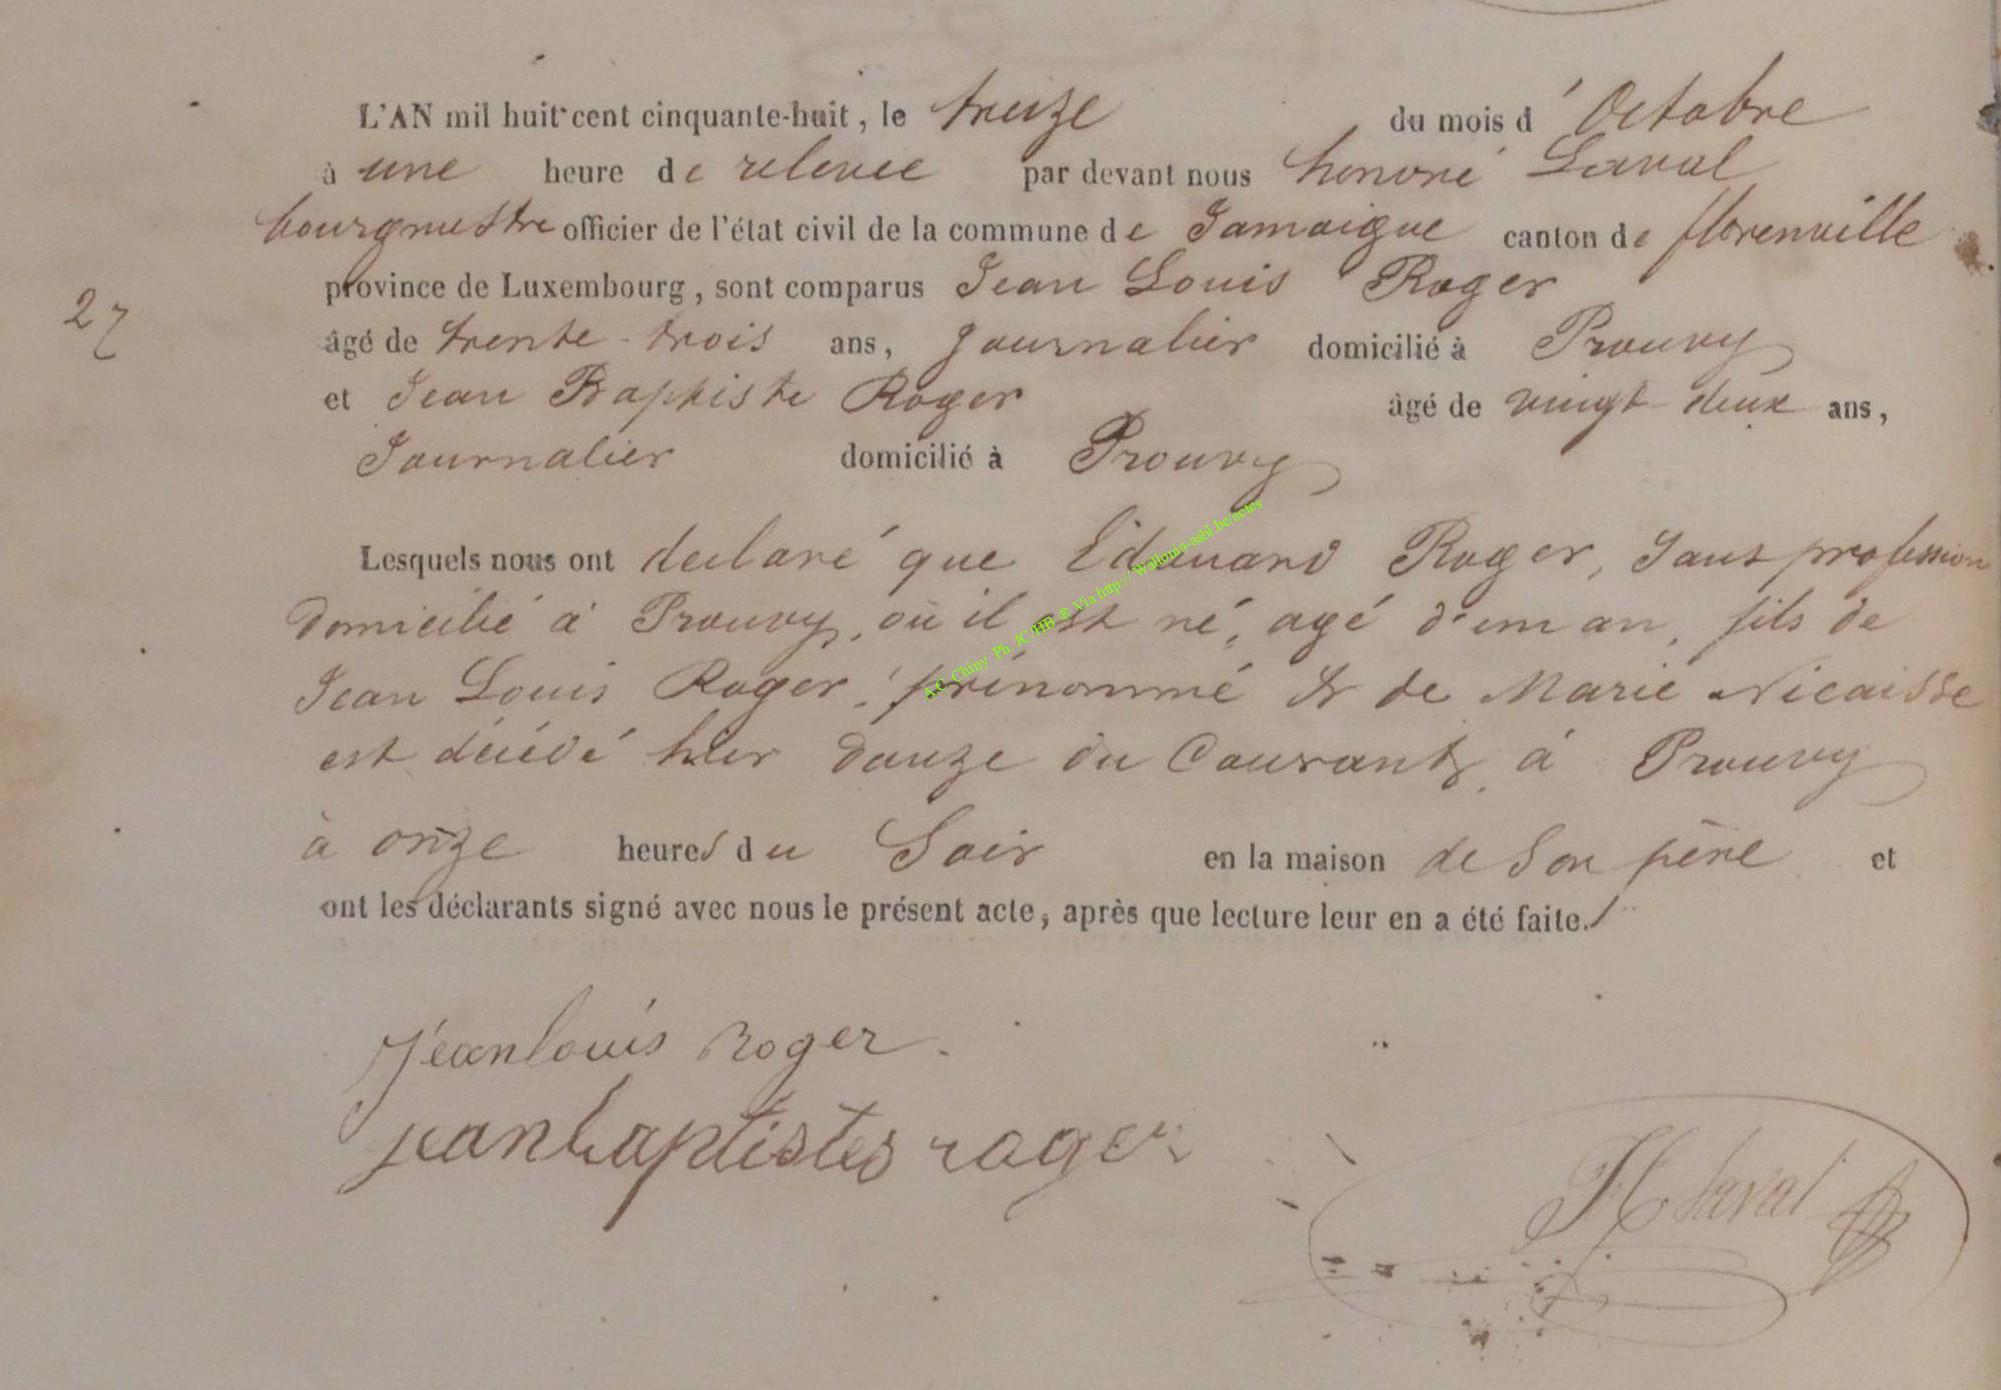 L'AN mil huit cent cinquante-huit, le treize du mois d'Octobre
à une heure de relevée par devant nous honoré Laval
bourgmestre officier de l'état civil de la commune de Jamoigne canton de florenville
province de Luxembourg, sont comparus Jean Louis Roger
27
âgé de trente-trois ans, Journalier domicilié à Prouvy
et Jean Baptiste Roger âgé de vingt-deux ans,
Journalier domicilié à Prouvy
Lesquels nous ont declaré que Edouard Roger, sans profession
domicilié à Prouvy, où il est né, agé d'un an, fils de
Jean Louis Roger, prénommé & de Marie Nicaisse
est décédé hier douze du Courant, à Prouvy
à onze heures du Soir en la maison de Son père et
ont les déclarants signé avec nous le présent acte, après que lecture leur en a été faite./
A.C. Chiny Ph JC/HB ® Via http://Wallonia-asbl.be/actes
jeanlouis Roger.
jeanbaptistes roger
H Laval